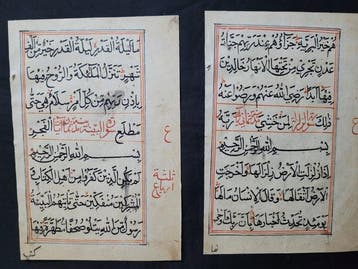 هم خير البرية جزاؤهم عند ربهم جنات
عدن تجري من تحتها الانهار خالدين
فيها ابدا رضي الله عنهم ورضوا عنه
ذلك لمن خشي ربه
بسم الله الرحمن الرحيم
اذا زلزلت الارض زلزالها واخرجت
الارض اثقالها وقال الانسان مالها
يومئذ تحدث اخبارها بان ربك اوحى
لها
ع
ما ليلة القدر ليلة القدر خير من الف
شهر تنزل الملئكة والروح فيها
باذن ربهم من كل امر سلام هي حتى
مطلع سورة البينة الفجر
بسم الله الرحمن الرحيم
لم يكن الذين كفروا من اهل الكتاب
والمشركين منفكين حتى تأتيهم البينة
رسول من الله يتلوا صحفا مطهرة فيها
كتب
ع
ثلثة
ارباع